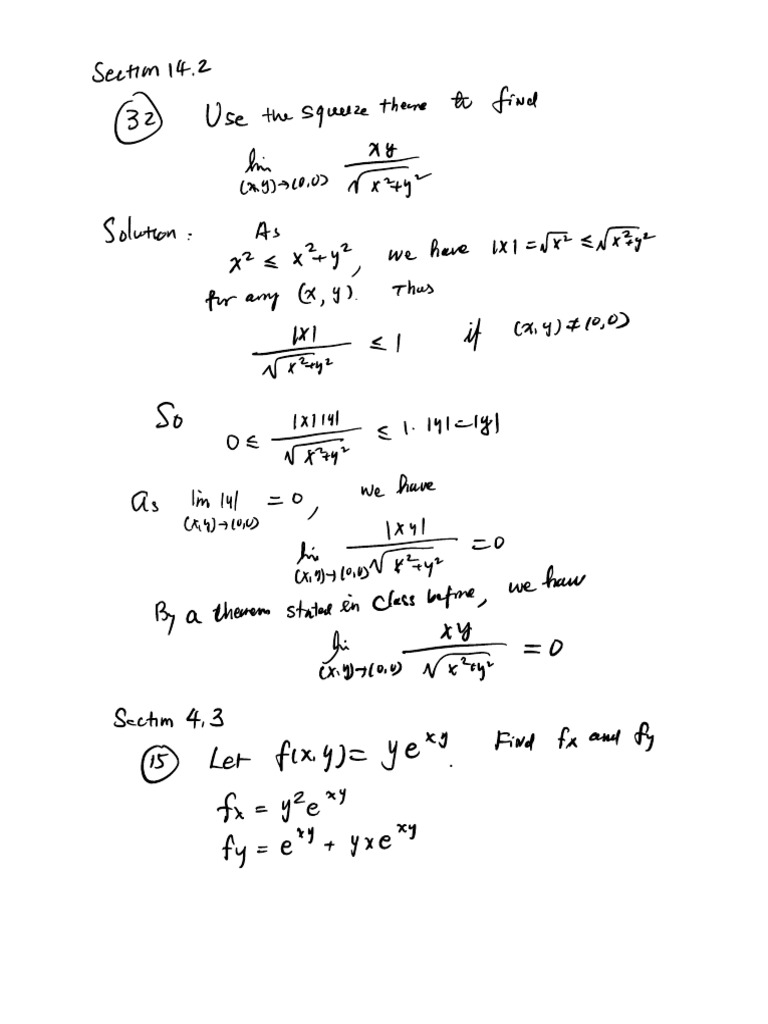 Section 14.2
(32) Use the squeeze theore to find
lim_{(x,y)→(0,0)} xy / √(x²+y²)
Solution: As
x² ≤ x²+y², we have |x| = √x² ≤ √(x²+y²)
for any (x, y). Thus
|x| / √(x²+y²) ≤ 1 if (x,y) ≠ (0,0)
So 0 ≤ |x||y| / √(x²+y²) ≤ 1·|y| = |y|
As lim_{(x,y)→(0,0)} |y| = 0, we have
lim_{(x,y)→(0,0)} |xy| / √(x²+y²) = 0
By a theorem stated in class before, we have
lim_{(x,y)→(0,0)} xy / √(x²+y²) = 0
Section 4.3
(15) Let f(x,y) = ye^{xy}. Find fx and fy
fx = y²e^{xy}
fy = e^{xy} + yxe^{xy}